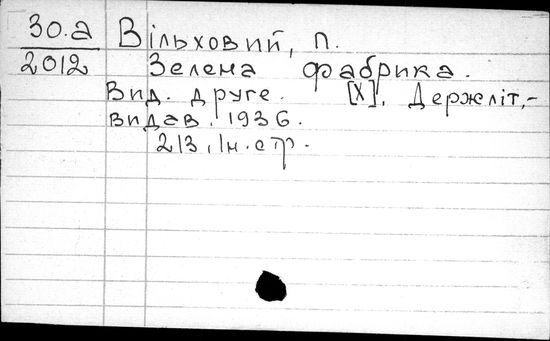 30.а Вільховий, П.
2012 Зелена фабрика.
Вид. друге. [Х]. Держліт,-
видав. 1936.
213, Iн.стр.